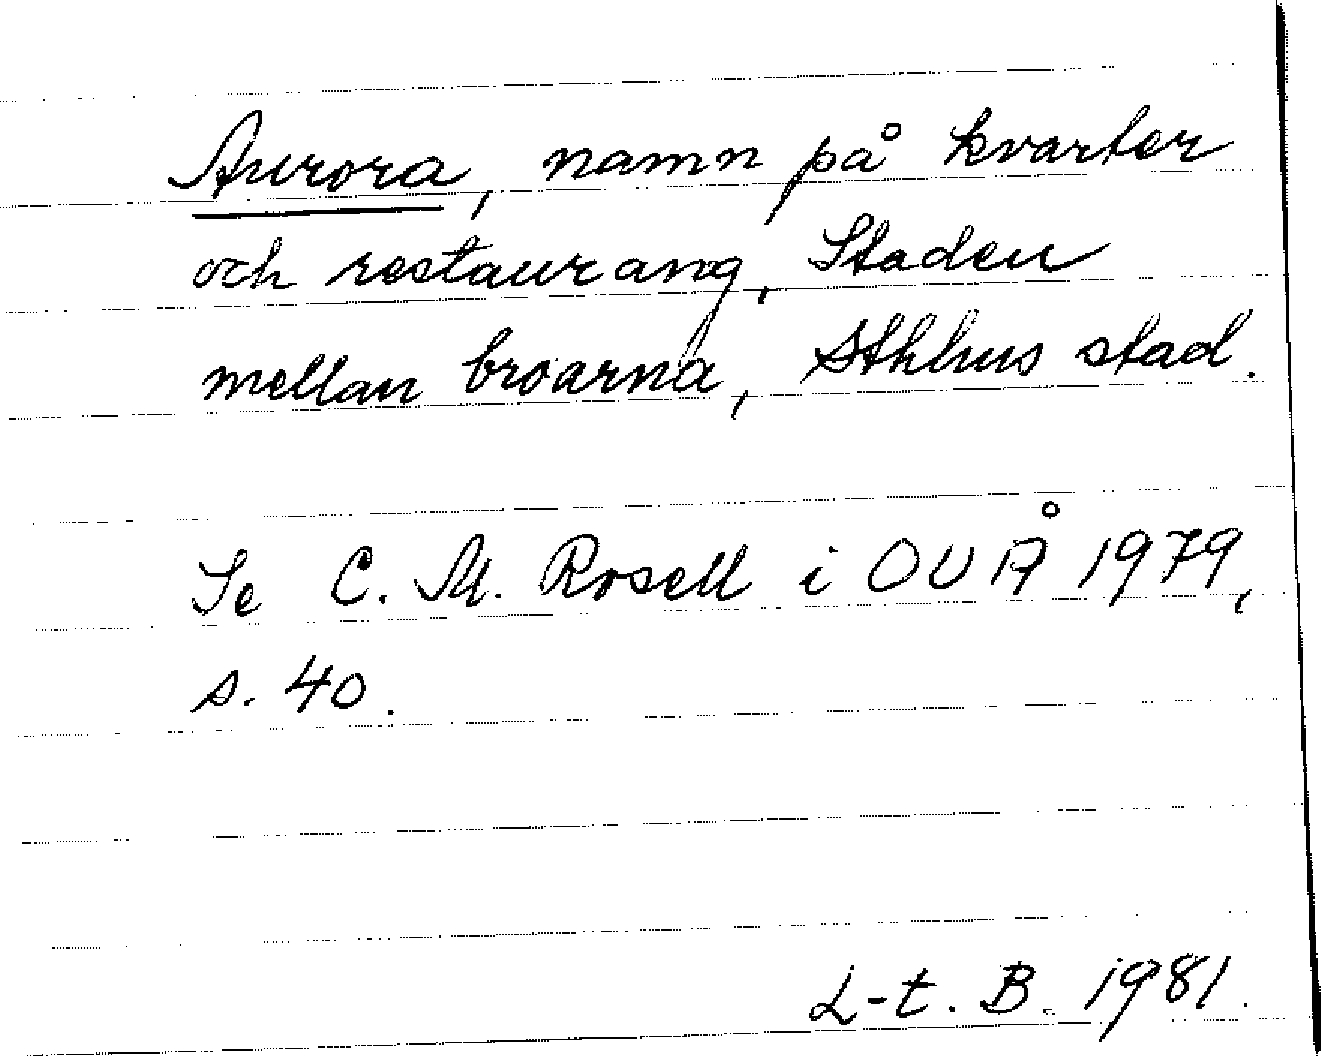 Aurora, namn på kvarter
och restaurang, Staden
mellan broarna, Sthlms stad.
Se C. M. Rosell i OUÅ 1979,
s. 40.
L-t. B. 1981.